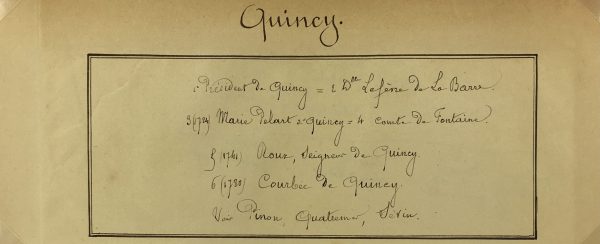 Quincy.
1 Président de Quincy = 2 Dlle Lefène de La Barre.
3(1724) Marie Pelart de Quincy = 4 comte de Fontaine.
5 (1741) Roux, Seigneur de Quincy.
6 (1780) Courbée de Quincy.
Voir Pinon, Quatremer, Sévin.